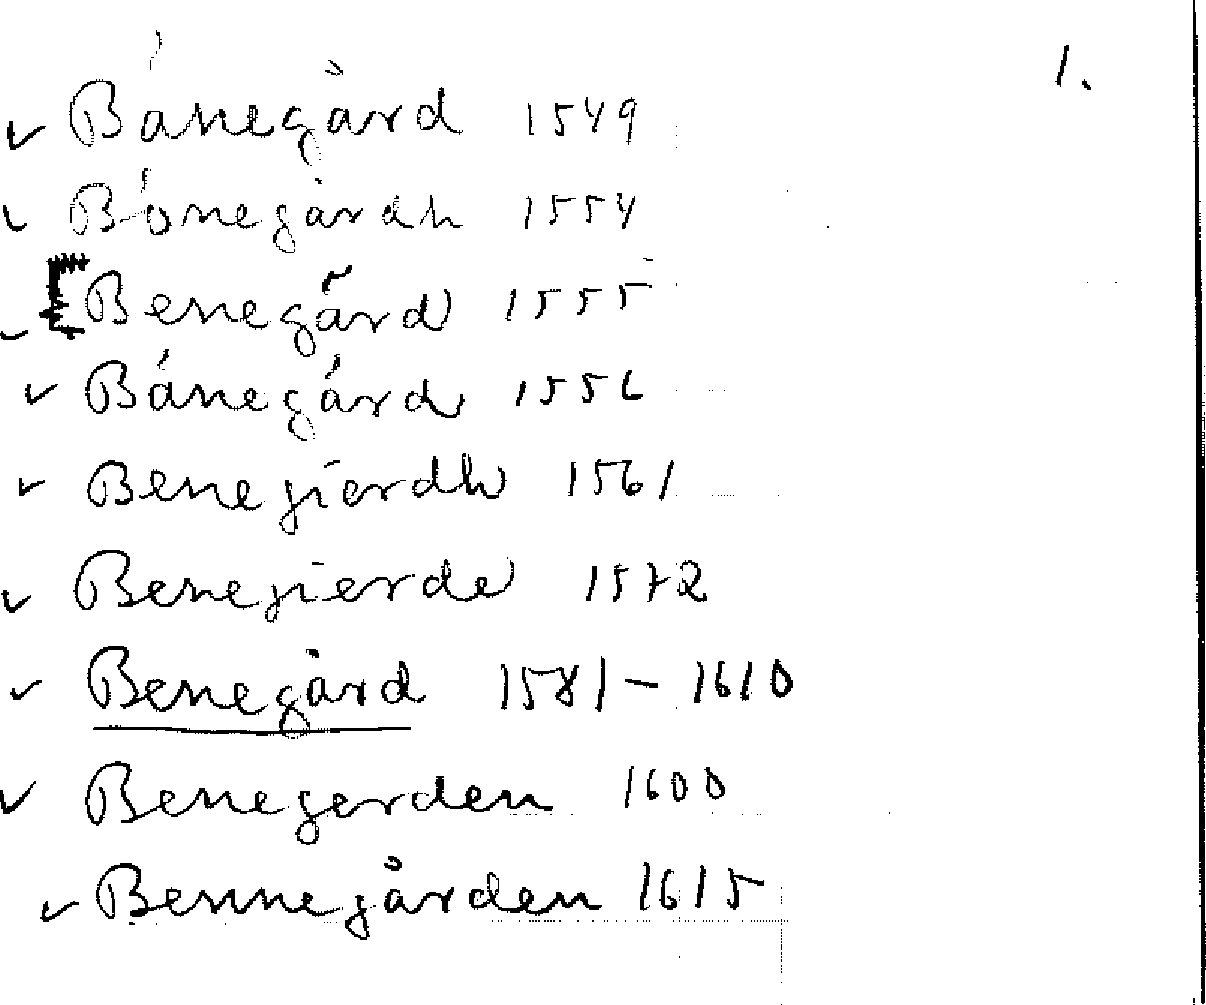 1.
✓ Bánegård 1549
✓ Bónegårdh 1554
✓ [Benegård 1555
✓ Bánegárd 1556
✓ Benegierdh 1561
✓ Benegierde 1572
✓ Benegård 1581–1610
✓ Benegerden 1600
✓ Bennegården 1615